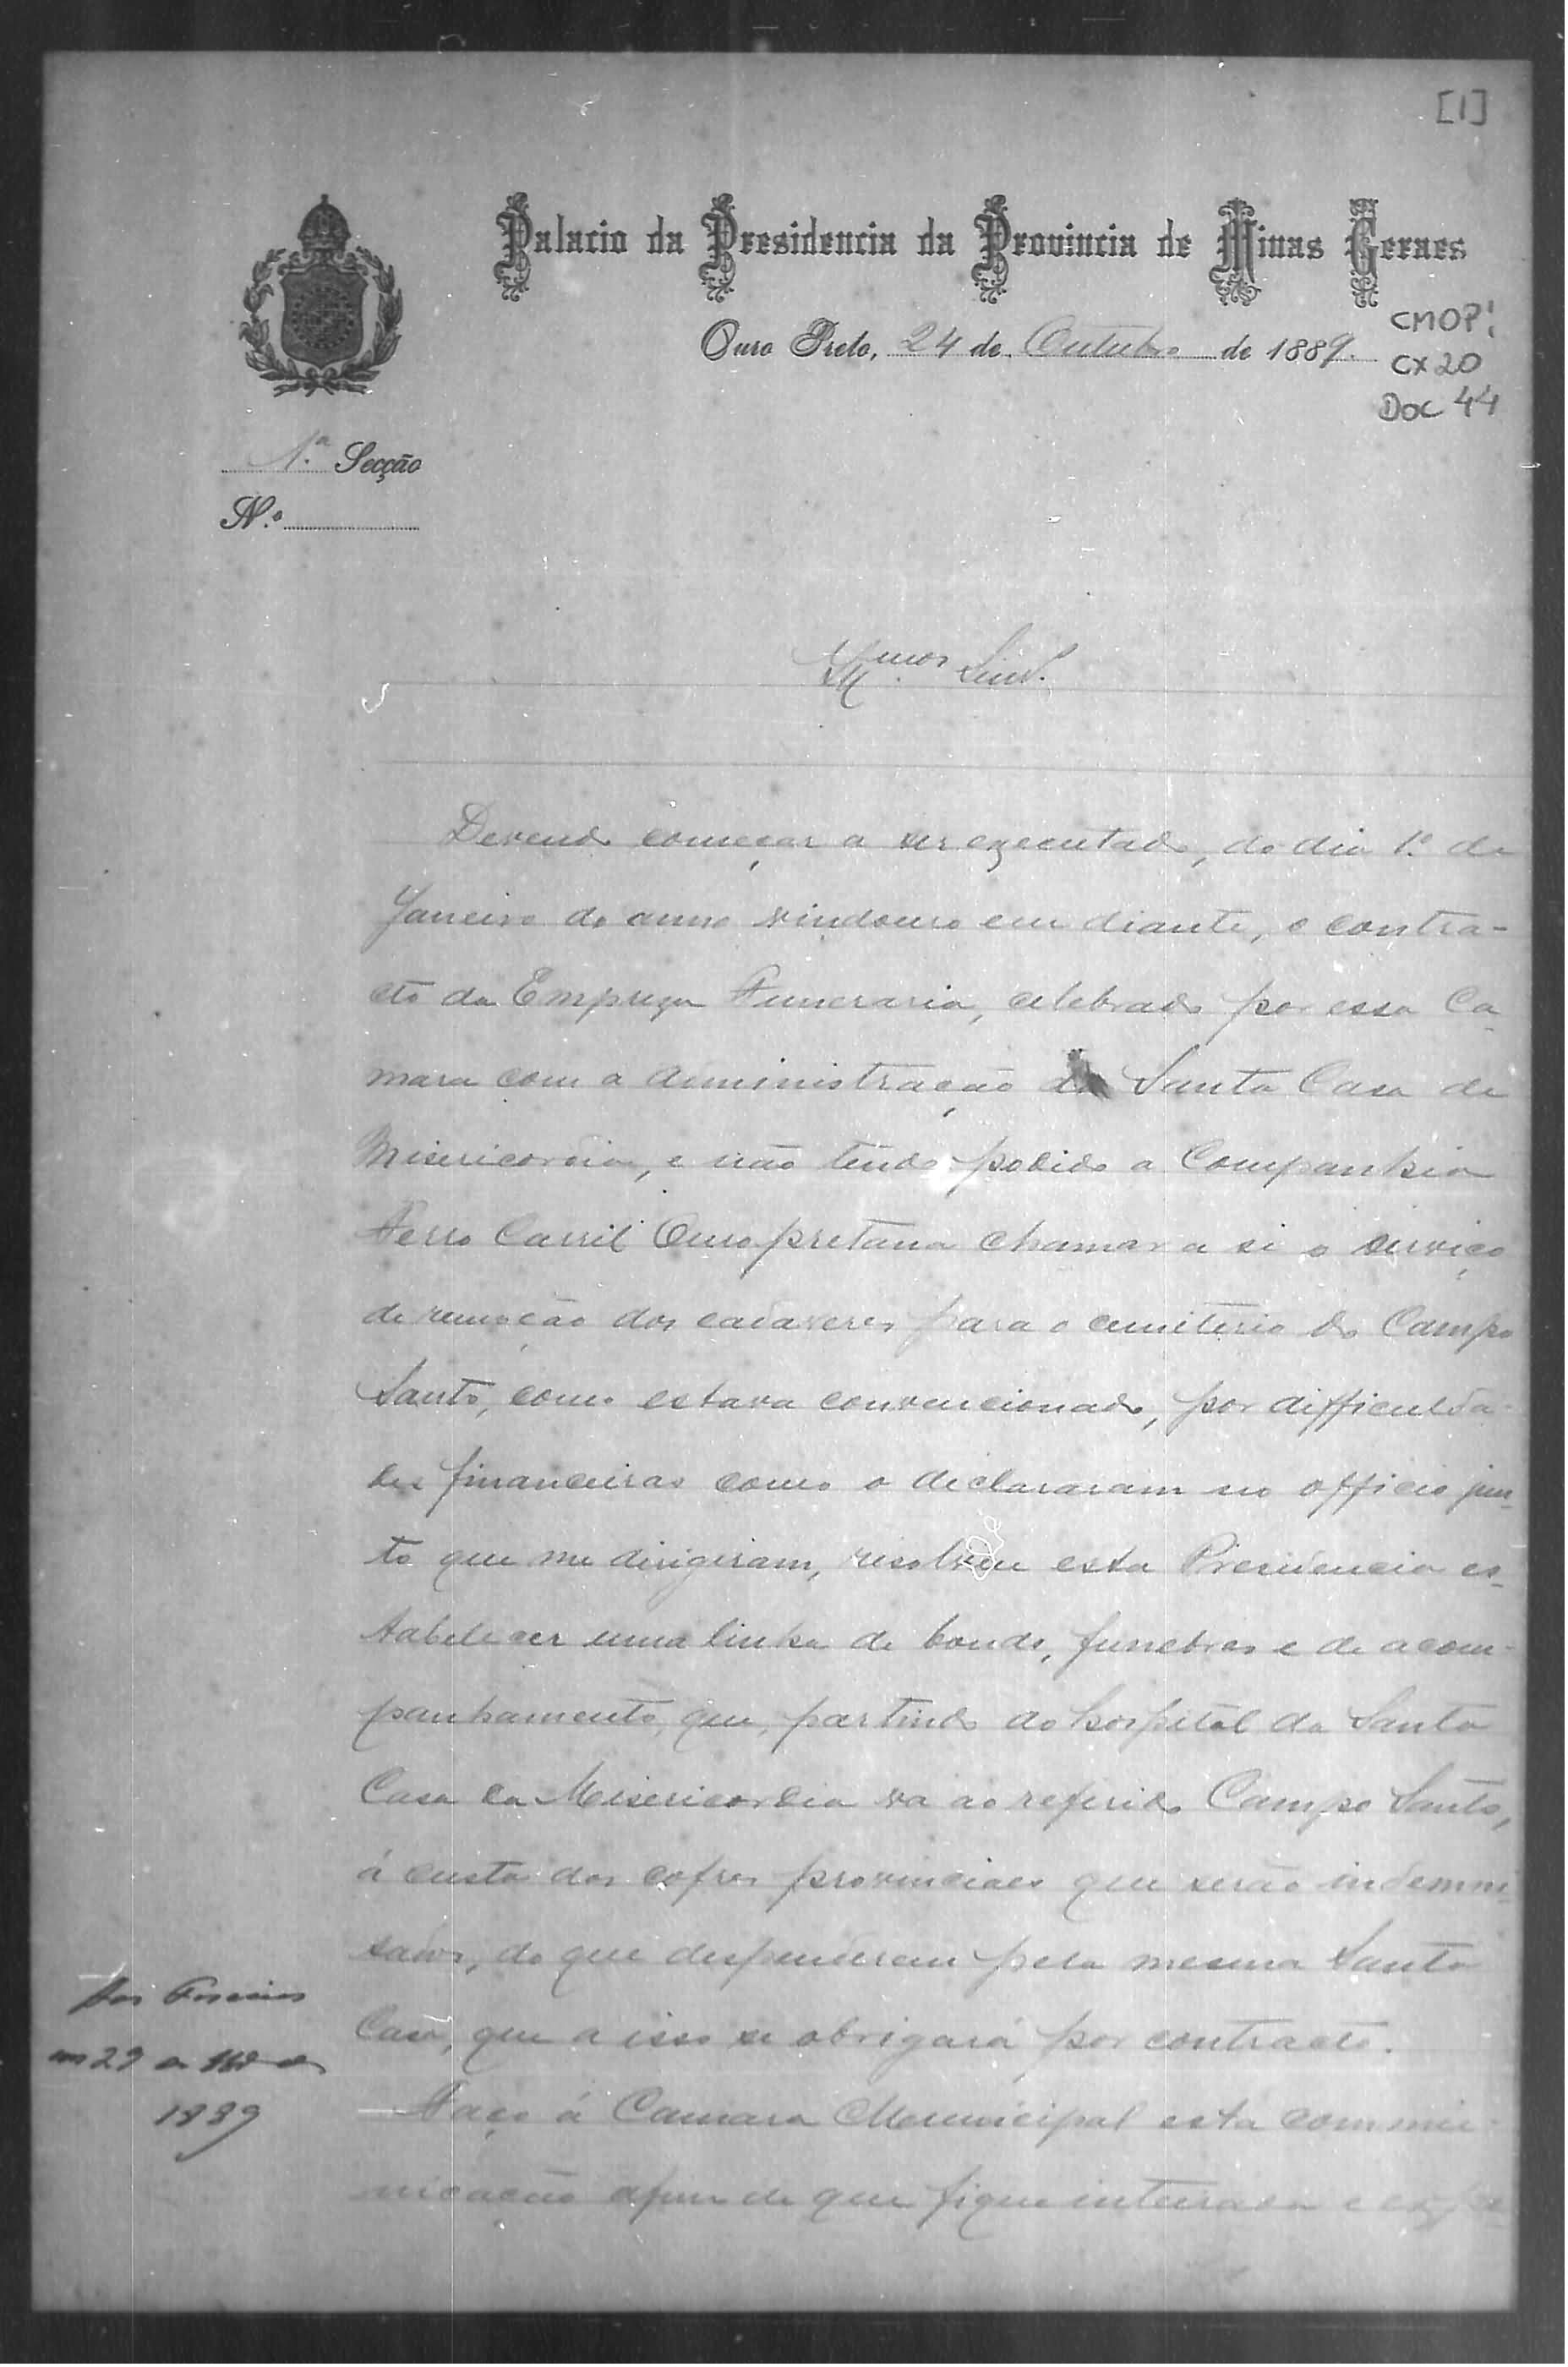 [1]
Palacio da Presidencia da Provincia de Minas Geraes
Ouro Preto, 24 de Outubro de 1889.
CMOP!
CX20
DOC 44
1.ª Secção
N.º
Illmos. Snrs.
Devendo começar a ser executado, do dia 1º de
Janeiro do anno vindouro em diante, o contra-
cto da Empreza Funeraria, celebrado por essa Ca-
mara com a administração da Santa Casa de
Misericordia, e não tendo podido a Companhia
Ferro Carril Ouropretana chamar a si o serviço
de remoção dos cadaveres para o cemiterio do Campo
Santo, como estava convencionado, por difficulda-
des financeiras como o declararam no officio jun-
to que me dirigiram, resolveu esta Presidencia es-
tabelecer uma linha de bonds, funebres e de acom-
panhamento, que, partindo do hospital da Santa
Casa da Misericordia vá ao referido Campo Santo,
á custa dos cofres provinciaes que serão indemni-
sados, do que despenderem pela mesma Santa
Casa, que a isso se obrigará por contracto.
Faço á Camara Municipal esta commu-
nicação afim de que fique inteirada e
29
1889